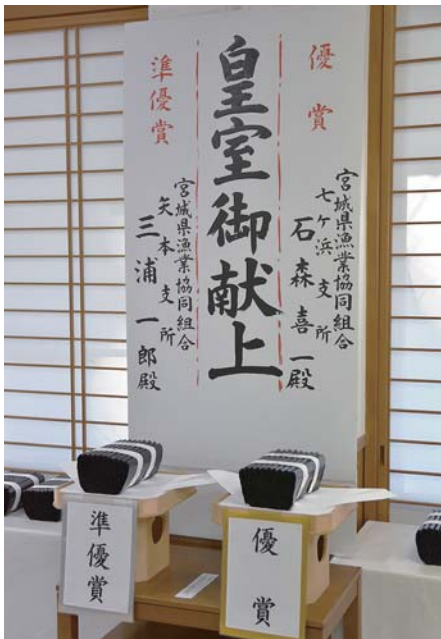 優賞
宮城県漁業協同組合
七ヶ浜支所
石森喜一殿
皇室御献上
準優賞
宮城県漁業協同組合
矢本支所
三浦一郎殿
準優賞
優賞